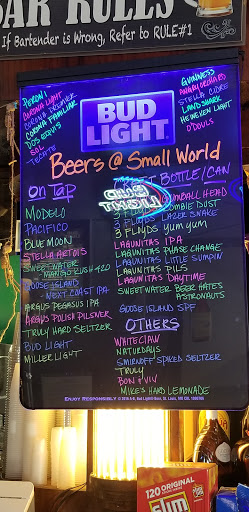 BAR RULES
If Bartender is Wrong, Refer to RULE#1
PERONI
CORONA LIGHT
CORONA PREMIER
CORONA FAMILIAR
DOS EQUIS
SOL
TECATE
GUINNESS
ANGRY ORCHARD
STELLA CIDRE
LANDSHARK
HEINEKEN LIGHT
O'DOULS
BUD
LIGHT
Beers @ Small World
ON TAP
MODELO
PACIFICO
BLUE MOON
STELLA ARTOIS
SWEETWATER
MANGO KUSH 420
GOOSE ISLAND
NEXT COAST IPA
ARGUS PEGASUS IPA
ARGUS POLISH PILSNER
TRULY HARD SELTZER
BUD LIGHT
MILLER LIGHT
BOTTLE/CAN
GUMBALL HEAD
ZOMBIE DUST
3 FLOYDS LAZER SNAKE
3 FLOYDS YUM YUM
LAGUNITAS IPA
LAGUNITAS PHASE CHANGE
LAGUNITAS LITTLE SUMPIN'
LAGUNITAS PILS
LAGUNITAS DAYTIME
SWEET WATER BEER HATES
ASTRONAUTS
GOOSE ISLAND SPF
OTHERS
WHITECLAW
NATURDAYS
SMIRNOFF SPIKED SELTZER
TRULY
BON & VIV
MIKE'S HARD LEMONADE
ENJOY RESPONSIBLY
120 ORIGINAL
slim